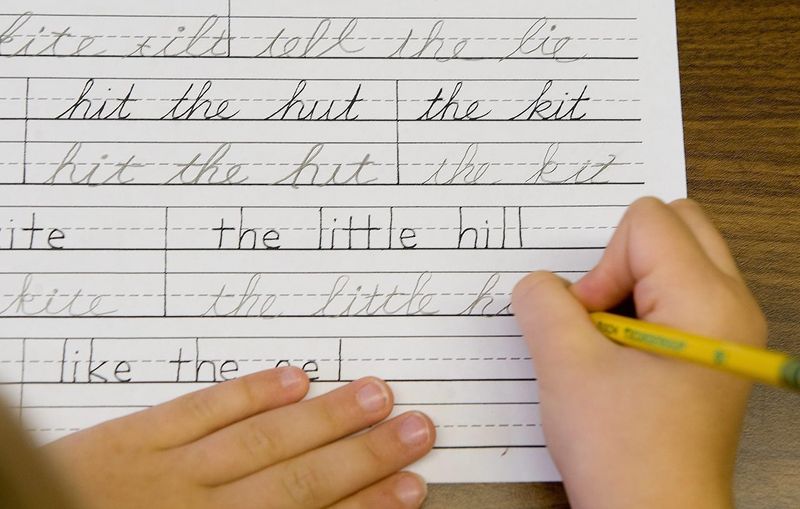 kite tilt tell the lie
hit the hut the kit
hit the hut the kit
ite the little hill
kite the little hi
like the eel